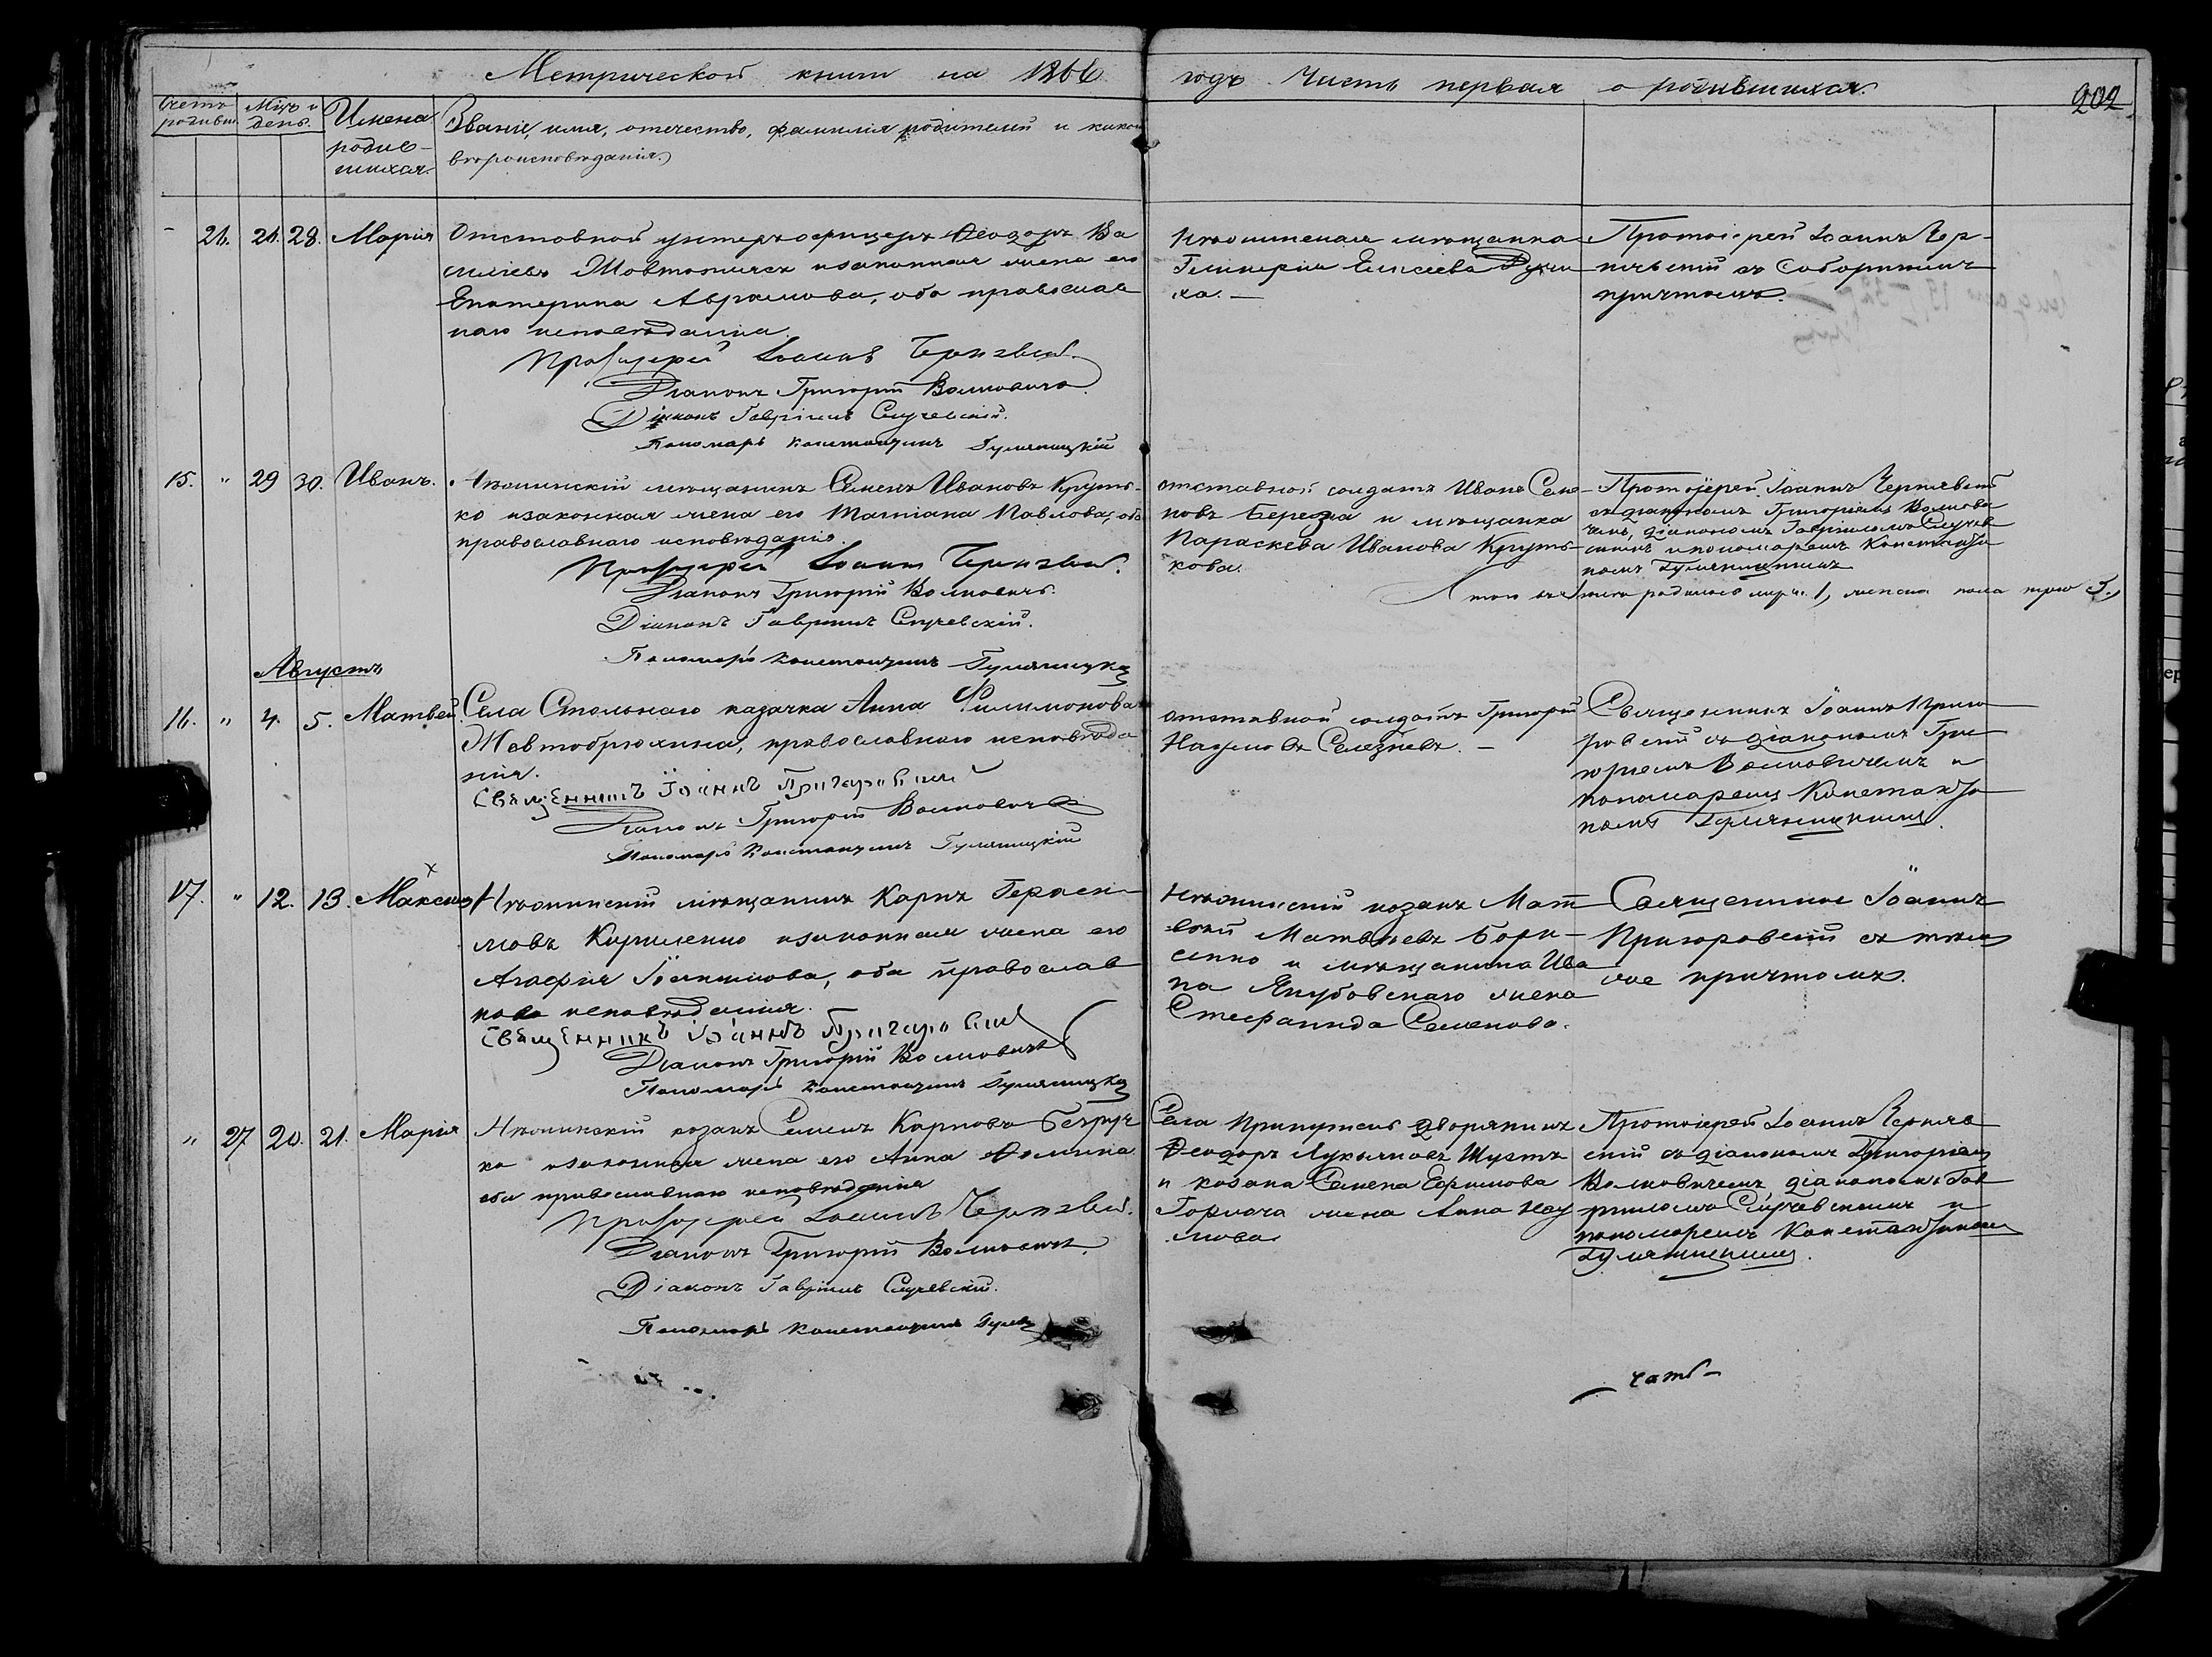 Метрической книги на 1866 годъ Часть первая о родившихся.
202
Счетъ родивш.
Мѣц. и день.
Имена родив-
шихся.
Званіе, имя, отечество, фамилія родителей и какого
вѣроисповѣданія.
26. 28. Марія
Отставной унтеръ офицеръ Ѳеодоръ Ва
сильевъ Жовтоножка и законная жена его
Екатерина Аврамова, оба православ
наго исповѣданія.
Протоіерей Іоаннъ Чернявскій
Діаконъ Григорій Волковичъ
Діаконъ Гавріилъ Случевскій.
Пономарь Константинъ Гуляницкій
Нѣжинская мѣщанка
Гликерія Елисеева
ха.
Протоіерей Іоаннъ Чер-
нявскій съ Соборнымъ
причтомъ.
15. " 29 30. Иванъ.
Нѣжинскій мѣщанинъ Семенъ Ивановъ Круть-
ко и законная жена его Татіана Павлова, оба
православнаго исповѣданія.
Протоіерей Іоаннъ Чернявскій.
Діаконъ Григорій Волковичъ.
Діаконъ Гавріилъ Случевскій.
Пономарь Константинъ Гуляницкій
отставной солдатъ Иванъ Семе-
новъ Береза и мѣщанка
Параскева Иванова Круть-
кова.
Протоіерей Іоаннъ Чернявскій
съ діакономъ Григоріемъ Волкови
чемъ, діакономъ Гавріиломъ Случев
скимъ и пономаремъ Константи
номъ Гуляницкимъ
родилось муж. 1, женска пола трое 3.
Августъ
16. " 4. 5. Матвей.
Села Стольнаго казачка Анна Филимонова
Жовтобрюхина, православнаго исповѣда
нія.
Священникъ Іоаннъ Пригоровскій
Діаконъ Григорій Волковичъ
Пономарь Константинъ Гуляницкій
отставной солдатъ Григорій
Наумовъ Селезневъ.
Священникъ Іоаннъ Приго
ровскій съ діакономъ Гри
горіемъ Волковичемъ и
пономаремъ Константи
номъ Гуляницкимъ.
17. " 12. 13. Максимъ
Нѣжинскій мѣщанинъ Карпъ Гераси
мовъ Кириленко и законная жена его
Агафія Іоакимова, оба православ
наго исповѣданія.
Священникъ Іоаннъ Пригоровскій
Діаконъ Григорій Волковичъ
Пономарь Константинъ Гуляницкій
Нѣжинскій козакъ Мат
вѣй Матвѣевъ Бори-
сенко и мѣщанина Ива
на Якубовскаго жена
Стефанида Семенова.
Священникъ Іоаннъ
Пригоровскій съ тѣмъ
же причтомъ.
" 27 20. 21. Марія
Нѣжинскій козакъ Семенъ Карповъ Безруч
ко и законная жена его Анна Ѳомина
оба православнаго исповѣданія
Протоіерей Іоаннъ Чернявскій.
Діаконъ Григорій Волковичъ.
Діаконъ Гавріилъ Случевскій.
Пономарь Константинъ
Села Припутень дворянинъ
Ѳеодоръ Лукьяновъ Шустъ
и козака Семена Ефимова
Горкача жена Анна Нау
мова
Протоіерей Іоаннъ Черняв
скій съ діакономъ Григоріемъ
Волковичемъ діакономъ Гав
риломъ Случевскимъ и
пономаремъ Константиномъ
Гуляницкимъ.